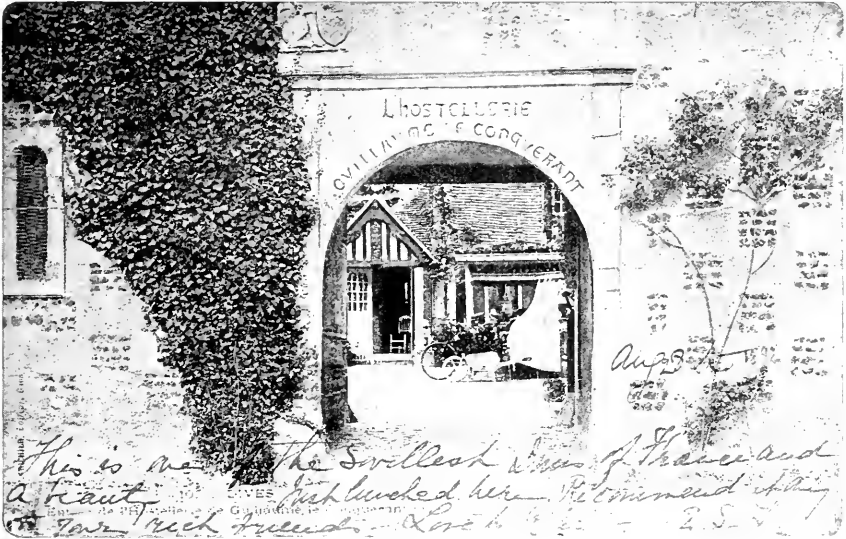 L'HOSTELLERIE
GVILLAUME LE CONQUERANT
Aug 3
This is one of the Swellest Inns of France and
a beauty Just lunched here Recommend it to any
of your rich friends Love to
DIVES
Entrée de l'Hostellerie de Guillaume le Conquérant